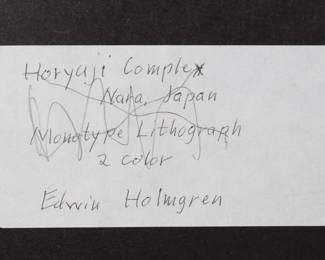 Horyuji Complex
Nara, Japan
Monotype Lithograph
2 color
Edwin Holmgren